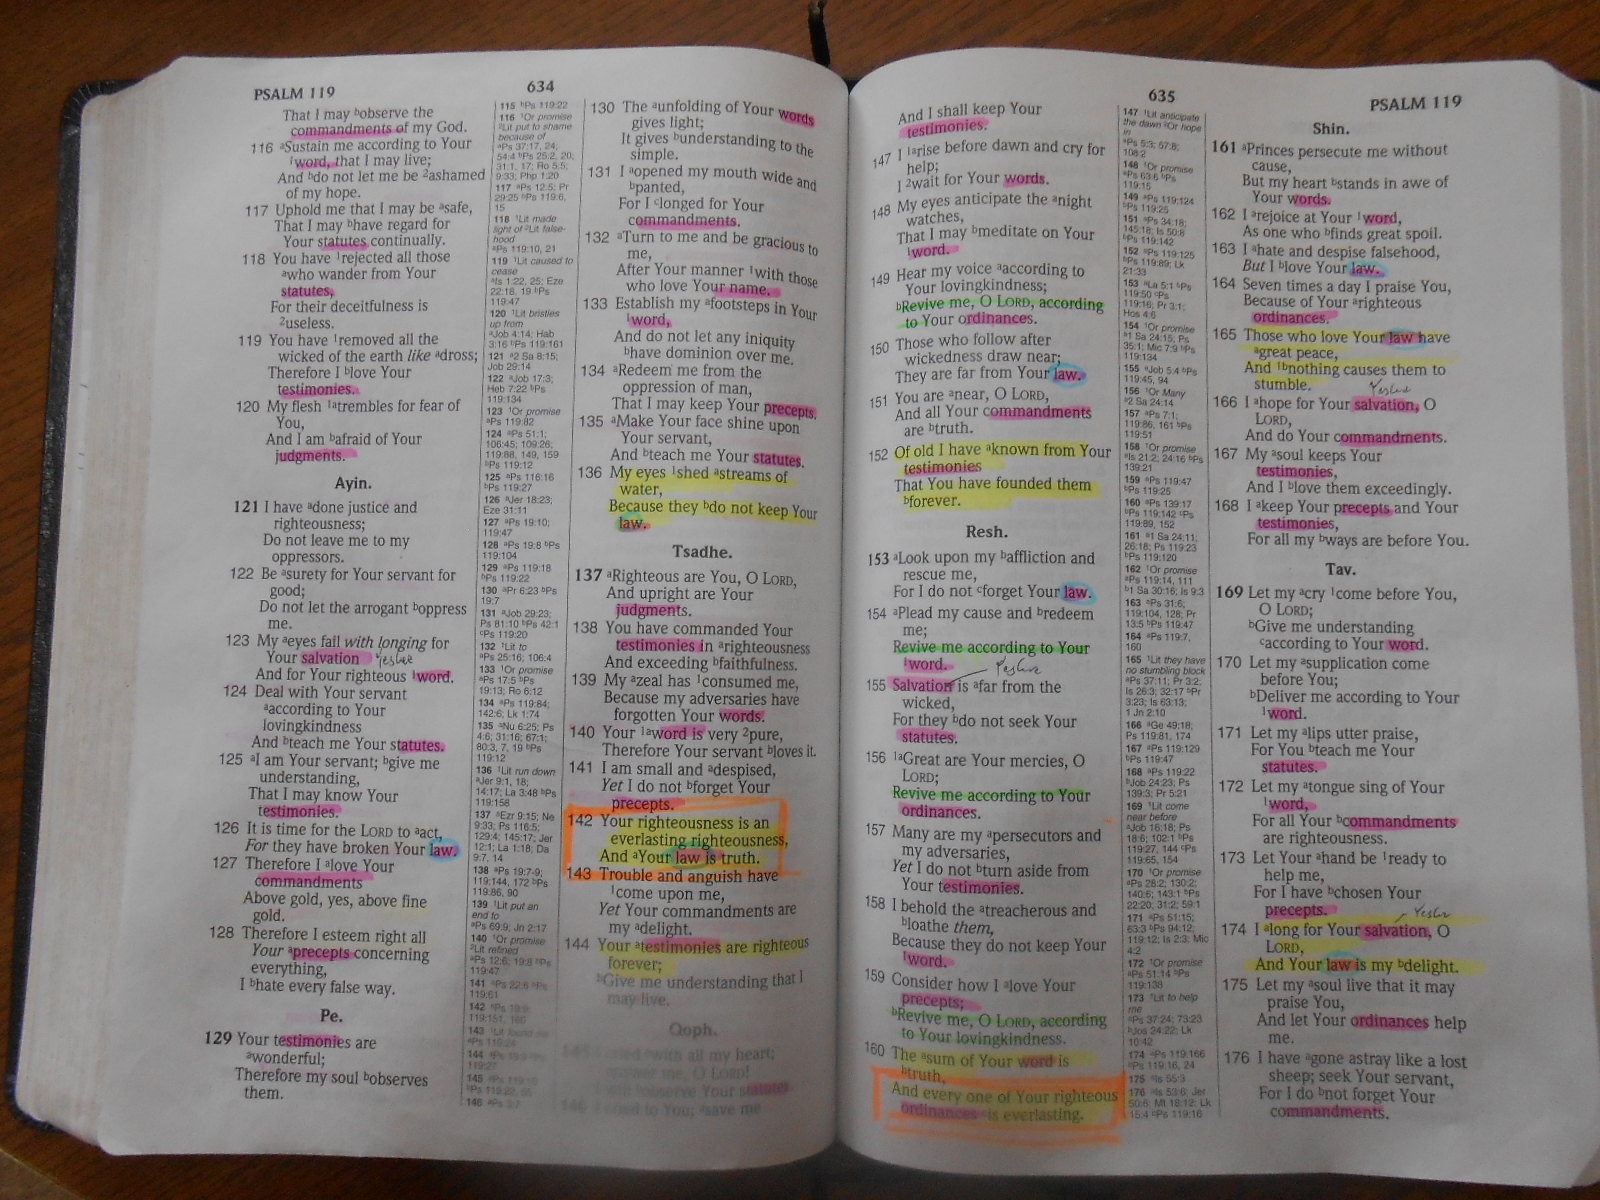 PSALM 119
634
That I may ᵇobserve the
commandments of my God.
116 ᵃSustain me according to Your
¹word, that I may live;
And ᵇdo not let me be ²ashamed
of my hope.
117 Uphold me that I may be ᵃsafe,
That I may ᵇhave regard for
Your statutes continually.
118 You have ¹rejected all those
ᵃwho wander from Your
statutes,
For their deceitfulness is
²useless.
119 You have ¹removed all the
wicked of the earth like ᵃdross;
Therefore I ᵇlove Your
testimonies.
120 My flesh ¹ᵃtrembles for fear of
You,
And I am ᵇafraid of Your
judgments.
Ayin.
121 I have ᵃdone justice and
righteousness;
Do not leave me to my
oppressors.
122 Be ᵃsurety for Your servant for
good;
Do not let the arrogant ᵇoppress
me.
123 My ᵃeyes fail with longing for
Your salvation Yeshua
And for Your righteous ¹word.
124 Deal with Your servant
ᵃaccording to Your
lovingkindness
And ᵇteach me Your statutes.
125 ᵃI am Your servant; ᵇgive me
understanding,
That I may know Your
testimonies.
126 It is time for the LORD to ᵃact,
For they have broken Your law.
127 Therefore I ᵃlove Your
commandments
Above gold, yes, above fine
gold.
128 Therefore I esteem right all
Your ᵃprecepts concerning
everything,
I ᵇhate every false way.
Pe.
129 Your testimonies are
ᵃwonderful;
Therefore my soul ᵇobserves
them.
115 ᵇPs 119:22
116 ¹Or promise
²Lit put to shame
because of
ᵃPs 37:17, 24;
54:4 ᵇPs 25:2, 20;
31:1, 17; Ro 5:5;
9:33; Php 1:20
117 ᵃPs 12:5; Pr
29:25 ᵇPs 119:6,
15
118 ¹Lit made
light of ²Lit false-
hood
ᵃPs 119:10, 21
119 ¹Lit caused to
cease
ᵃIs 1:22, 25; Eze
22:18, 19 ᵇPs
119:47
120 ¹Lit bristles
up from
ᵃJob 4:14; Hab
3:16 ᵇPs 119:161
121 ᵃ2 Sa 8:15;
Job 29:14
122 ᵃJob 17:3;
Heb 7:22 ᵇPs
119:134
123 ¹Or promise
ᵃPs 119:82
124 ᵃPs 51:1;
106:45; 109:26;
119:88, 149, 159
ᵇPs 119:12
125 ᵃPs 116:16
ᵇPs 119:27
126 ᵃJer 18:23;
Eze 31:11
127 ᵃPs 19:10;
119:47
128 ᵃPs 19:8 ᵇPs
119:104
129 ᵃPs 119:18
ᵇPs 119:22
130 ᵃPr 6:23 ᵇPs
19:7
131 ᵃJob 29:23;
Ps 81:10 ᵇPs 42:1
ᶜPs 119:20
132 ¹Lit to
ᵃPs 25:16; 106:4
133 ¹Or promise
ᵃPs 17:5 ᵇPs
19:13; Ro 6:12
134 ᵃPs 119:84;
142:6; Lk 1:74
135 ᵃNu 6:25; Ps
4:6; 31:16; 67:1;
80:3, 7, 19 ᵇPs
119:12
136 ¹Lit run down
ᵃJer 9:1, 18;
14:17; La 3:48 ᵇPs
119:158
137 ᵃEzr 9:15; Ne
9:33; Ps 116:5;
129:4; 145:17; Jer
12:1; La 1:18; Da
9:7, 14
138 ᵃPs 19:7-9;
119:144, 172 ᵇPs
119:86, 90
139 ¹Lit put an
end to
ᵃPs 69:9; Jn 2:17
140 ¹Or promise
²Lit refined
ᵃPs 12:6; 19:8 ᵇPs
119:47
141 ᵃPs 22:6 ᵇPs
119:61
142 ᵃPs 19:9;
119:151, 160
143 ¹Lit found me
ᵃPs 119:24
144 ᵃPs 19:9
119:27
145
146
130 The ᵃunfolding of Your words
gives light;
It gives ᵇunderstanding to the
simple.
131 I ᵃopened my mouth wide and
ᵇpanted,
For I ᶜlonged for Your
commandments.
132 ᵃTurn to me and be gracious to
me,
After Your manner ¹with those
who love Your name.
133 Establish my ᵃfootsteps in Your
¹word,
And do not let any iniquity
ᵇhave dominion over me.
134 ᵃRedeem me from the
oppression of man,
That I may keep Your precepts.
135 ᵃMake Your face shine upon
Your servant,
And ᵇteach me Your statutes.
136 My eyes ¹shed ᵃstreams of
water,
Because they ᵇdo not keep Your
law.
Tsadhe.
137 ᵃRighteous are You, O LORD,
And upright are Your
judgments.
138 You have commanded Your
testimonies in ᵃrighteousness
And exceeding ᵇfaithfulness.
139 My ᵃzeal has ¹consumed me,
Because my adversaries have
forgotten Your words.
140 Your ¹ᵃword is very ²pure,
Therefore Your servant ᵇloves it.
141 I am small and ᵃdespised,
Yet I do not ᵇforget Your
precepts.
142 Your righteousness is an
everlasting righteousness,
And ᵃYour law is truth.
143 Trouble and anguish have
¹come upon me,
Yet Your commandments are
my ᵃdelight.
144 Your ᵃtestimonies are righteous
forever;
ᵇGive me understanding that I
may live.
Qoph.
145 I cried ᵃwith all my heart;
answer me, O LORD!
I will ᵇobserve Your statutes.
146 I cried to You; ᵃsave me
635
PSALM 119
And I shall keep Your
testimonies.
147 I ¹ᵃrise before dawn and cry for
help;
I ²wait for Your words.
148 My eyes anticipate the ᵃnight
watches,
That I may ᵇmeditate on Your
¹word.
149 Hear my voice ᵃaccording to
Your lovingkindness;
ᵇRevive me, O LORD, according
to Your ordinances.
150 Those who follow after
wickedness draw near;
They are far from Your law.
151 You are ᵃnear, O LORD,
And all Your commandments
are ᵇtruth.
152 Of old I have ᵃknown from Your
testimonies
That You have founded them
ᵇforever.
Resh.
153 ᵃLook upon my ᵇaffliction and
rescue me,
For I do not ᶜforget Your law.
154 ᵃPlead my cause and ᵇredeem
me;
Revive me according to Your
¹word.
Yeshua
155 Salvation is ᵃfar from the
wicked,
For they ᵇdo not seek Your
statutes.
156 ¹ᵃGreat are Your mercies, O
LORD;
Revive me according to Your
ordinances.
157 Many are my ᵃpersecutors and
my adversaries,
Yet I do not ᵇturn aside from
Your testimonies.
158 I behold the ᵃtreacherous and
ᵇloathe them,
Because they do not keep Your
¹word.
159 Consider how I ᵃlove Your
precepts;
ᵇRevive me, O LORD, according
to Your lovingkindness.
160 The ᵃsum of Your word is
ᵇtruth,
And every one of Your righteous
ordinances is everlasting.
147 ¹Lit anticipate
the dawn ²Or hope
in
ᵃPs 5:3; 57:8;
108:2
148 ¹Or promise
ᵃPs 63:6 ᵇPs
119:15
149 ᵃPs 119:124
ᵇPs 119:25
151 ᵃPs 34:18;
145:18; Is 50:8
ᵇPs 119:142
152 ᵃPs 119:125
ᵇPs 119:89; Lk
21:33
153 ᵃLa 5:1 ᵇPs
119:50 ᶜPs
119:16; Pr 3:1;
Hos 4:6
154 ¹Or promise
ᵃ1 Sa 24:15; Ps
35:1; Mic 7:9 ᵇPs
119:134
155 ᵃJob 5:4 ᵇPs
119:45, 94
156 ¹Or Many
ᵃ2 Sa 24:14
157 ᵃPs 7:1;
119:86, 161 ᵇPs
119:51
158 ¹Or promise
ᵃIs 21:2; 24:16 ᵇPs
139:21
159 ᵃPs 119:47
ᵇPs 119:25
160 ᵃPs 139:17
ᵇPs 119:142 ᶜPs
119:89, 152
161 ᵃ1 Sa 24:11;
26:18; Ps 119:23
ᵇPs 119:120
162 ¹Or promise
ᵃPs 119:14, 111
ᵇ1 Sa 30:16; Is 9:3
163 ᵃPs 31:6;
119:104, 128; Pr
13:5 ᵇPs 119:47
164 ᵃPs 119:7,
160
165 ¹Lit they have
no stumbling block
ᵃPs 37:11; Pr 3:2;
Is 26:3; 32:17 ᵇPr
3:23; Is 63:13;
1 Jn 2:10
166 ᵃGe 49:18;
Ps 119:81, 174
167 ᵃPs 119:129
ᵇPs 119:47
168 ᵃPs 119:22
ᵇJob 24:23; Ps
139:3; Pr 5:21
169 ¹Lit come
near before
ᵃJob 16:18; Ps
18:6; 102:1 ᵇPs
119:27, 144 ᶜPs
119:65, 154
170 ¹Or promise
ᵃPs 28:2; 130:2;
140:6; 143:1 ᵇPs
22:20; 31:2; 59:1
171 ᵃPs 51:15;
63:3 ᵇPs 94:12;
119:12; Is 2:3; Mic
4:2
172 ¹Or promise
ᵃPs 51:14 ᵇPs
119:138
173 ¹Lit to help
me
ᵃPs 37:24; 73:23
ᵇJos 24:22; Lk
10:42
174 ᵃPs 119:166
ᵇPs 119:16, 24
175 ᵃIs 55:3
176 ᵃIs 53:6; Jer
50:6; Mt 18:12; Lk
15:4 ᵇPs 119:16
Shin.
161 ᵃPrinces persecute me without
cause,
But my heart ᵇstands in awe of
Your words.
162 I ᵃrejoice at Your ¹word,
As one who ᵇfinds great spoil.
163 I ᵃhate and despise falsehood,
But I ᵇlove Your law.
164 Seven times a day I praise You,
Because of Your ᵃrighteous
ordinances.
165 Those who love Your law have
ᵃgreat peace,
And ¹ᵇnothing causes them to
stumble.
Yeshua
166 I ᵃhope for Your salvation, O
LORD,
And do Your commandments.
167 My ᵃsoul keeps Your
testimonies,
And I ᵇlove them exceedingly.
168 I ᵃkeep Your precepts and Your
testimonies,
For all my ᵇways are before You.
Tav.
169 Let my ᵃcry ¹come before You,
O LORD;
ᵇGive me understanding
ᶜaccording to Your word.
170 Let my ᵃsupplication come
before You;
ᵇDeliver me according to Your
¹word.
171 Let my ᵃlips utter praise,
For You ᵇteach me Your
statutes.
172 Let my ᵃtongue sing of Your
¹word,
For all Your ᵇcommandments
are righteousness.
173 Let Your ᵃhand be ¹ready to
help me,
For I have ᵇchosen Your
precepts.
Yeshua
174 I ᵃlong for Your salvation, O
LORD,
And Your law is my ᵇdelight.
175 Let my ᵃsoul live that it may
praise You,
And let Your ordinances help
me.
176 I have ᵃgone astray like a lost
sheep; seek Your servant,
For I do ᵇnot forget Your
commandments.